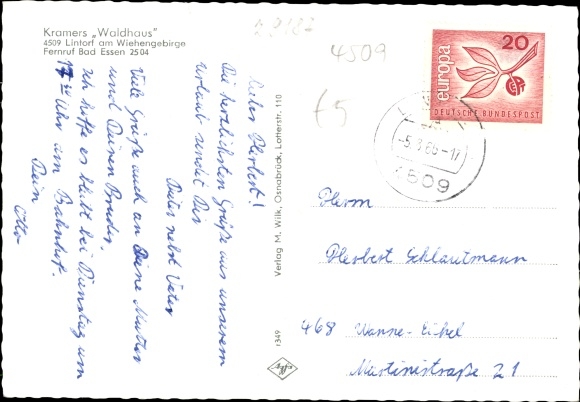 Kramers „Waldhaus"
4509 Lintorf am Wiehengebirge
Fernruf Bad Essen 2504
Lieber Herbert!
Die herzlichsten Grüße aus unserem
Urlaub sendet Dir
Dieter nebst Vater
Viele Grüße auch an Deine Mutter
und Deinen Bruder.
Ich hoffe es bleibt bei Dienstag um
17 Uhr am Bahnhof.
Dein
Otto
Verlag M. Wilk, Osnabrück, Lotterstr. 110
1349
4509
£5
europa
20
DEUTSCHE BUNDESPOST
-5.8.65-17
4509
Herrn
Herbert Schlautmann
468 Wanne-Eickel
Martinistraße 21